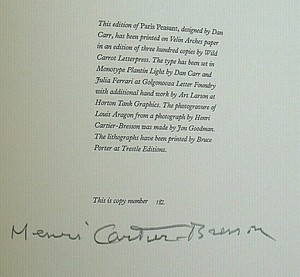 This edition of Paris Peasant, designed by Dan
Carr, has been printed on Velin Arches paper
in an edition of three hundred copies by Wild
Carrot Letterpress. The type has been set in
Monotype Plantin Light by Dan Carr and
Julia Ferrari at Golgonooza Letter Foundry
with additional hand work by Art Larson at
Horton Tank Graphics. The photogravure of
Louis Aragon from a photograph by Henri
Cartier-Bresson was made by Jon Goodman.
The lithographs have been printed by Bruce
Porter at Trestle Editions.
This is copy number 182
Henri Cartier-Bresson